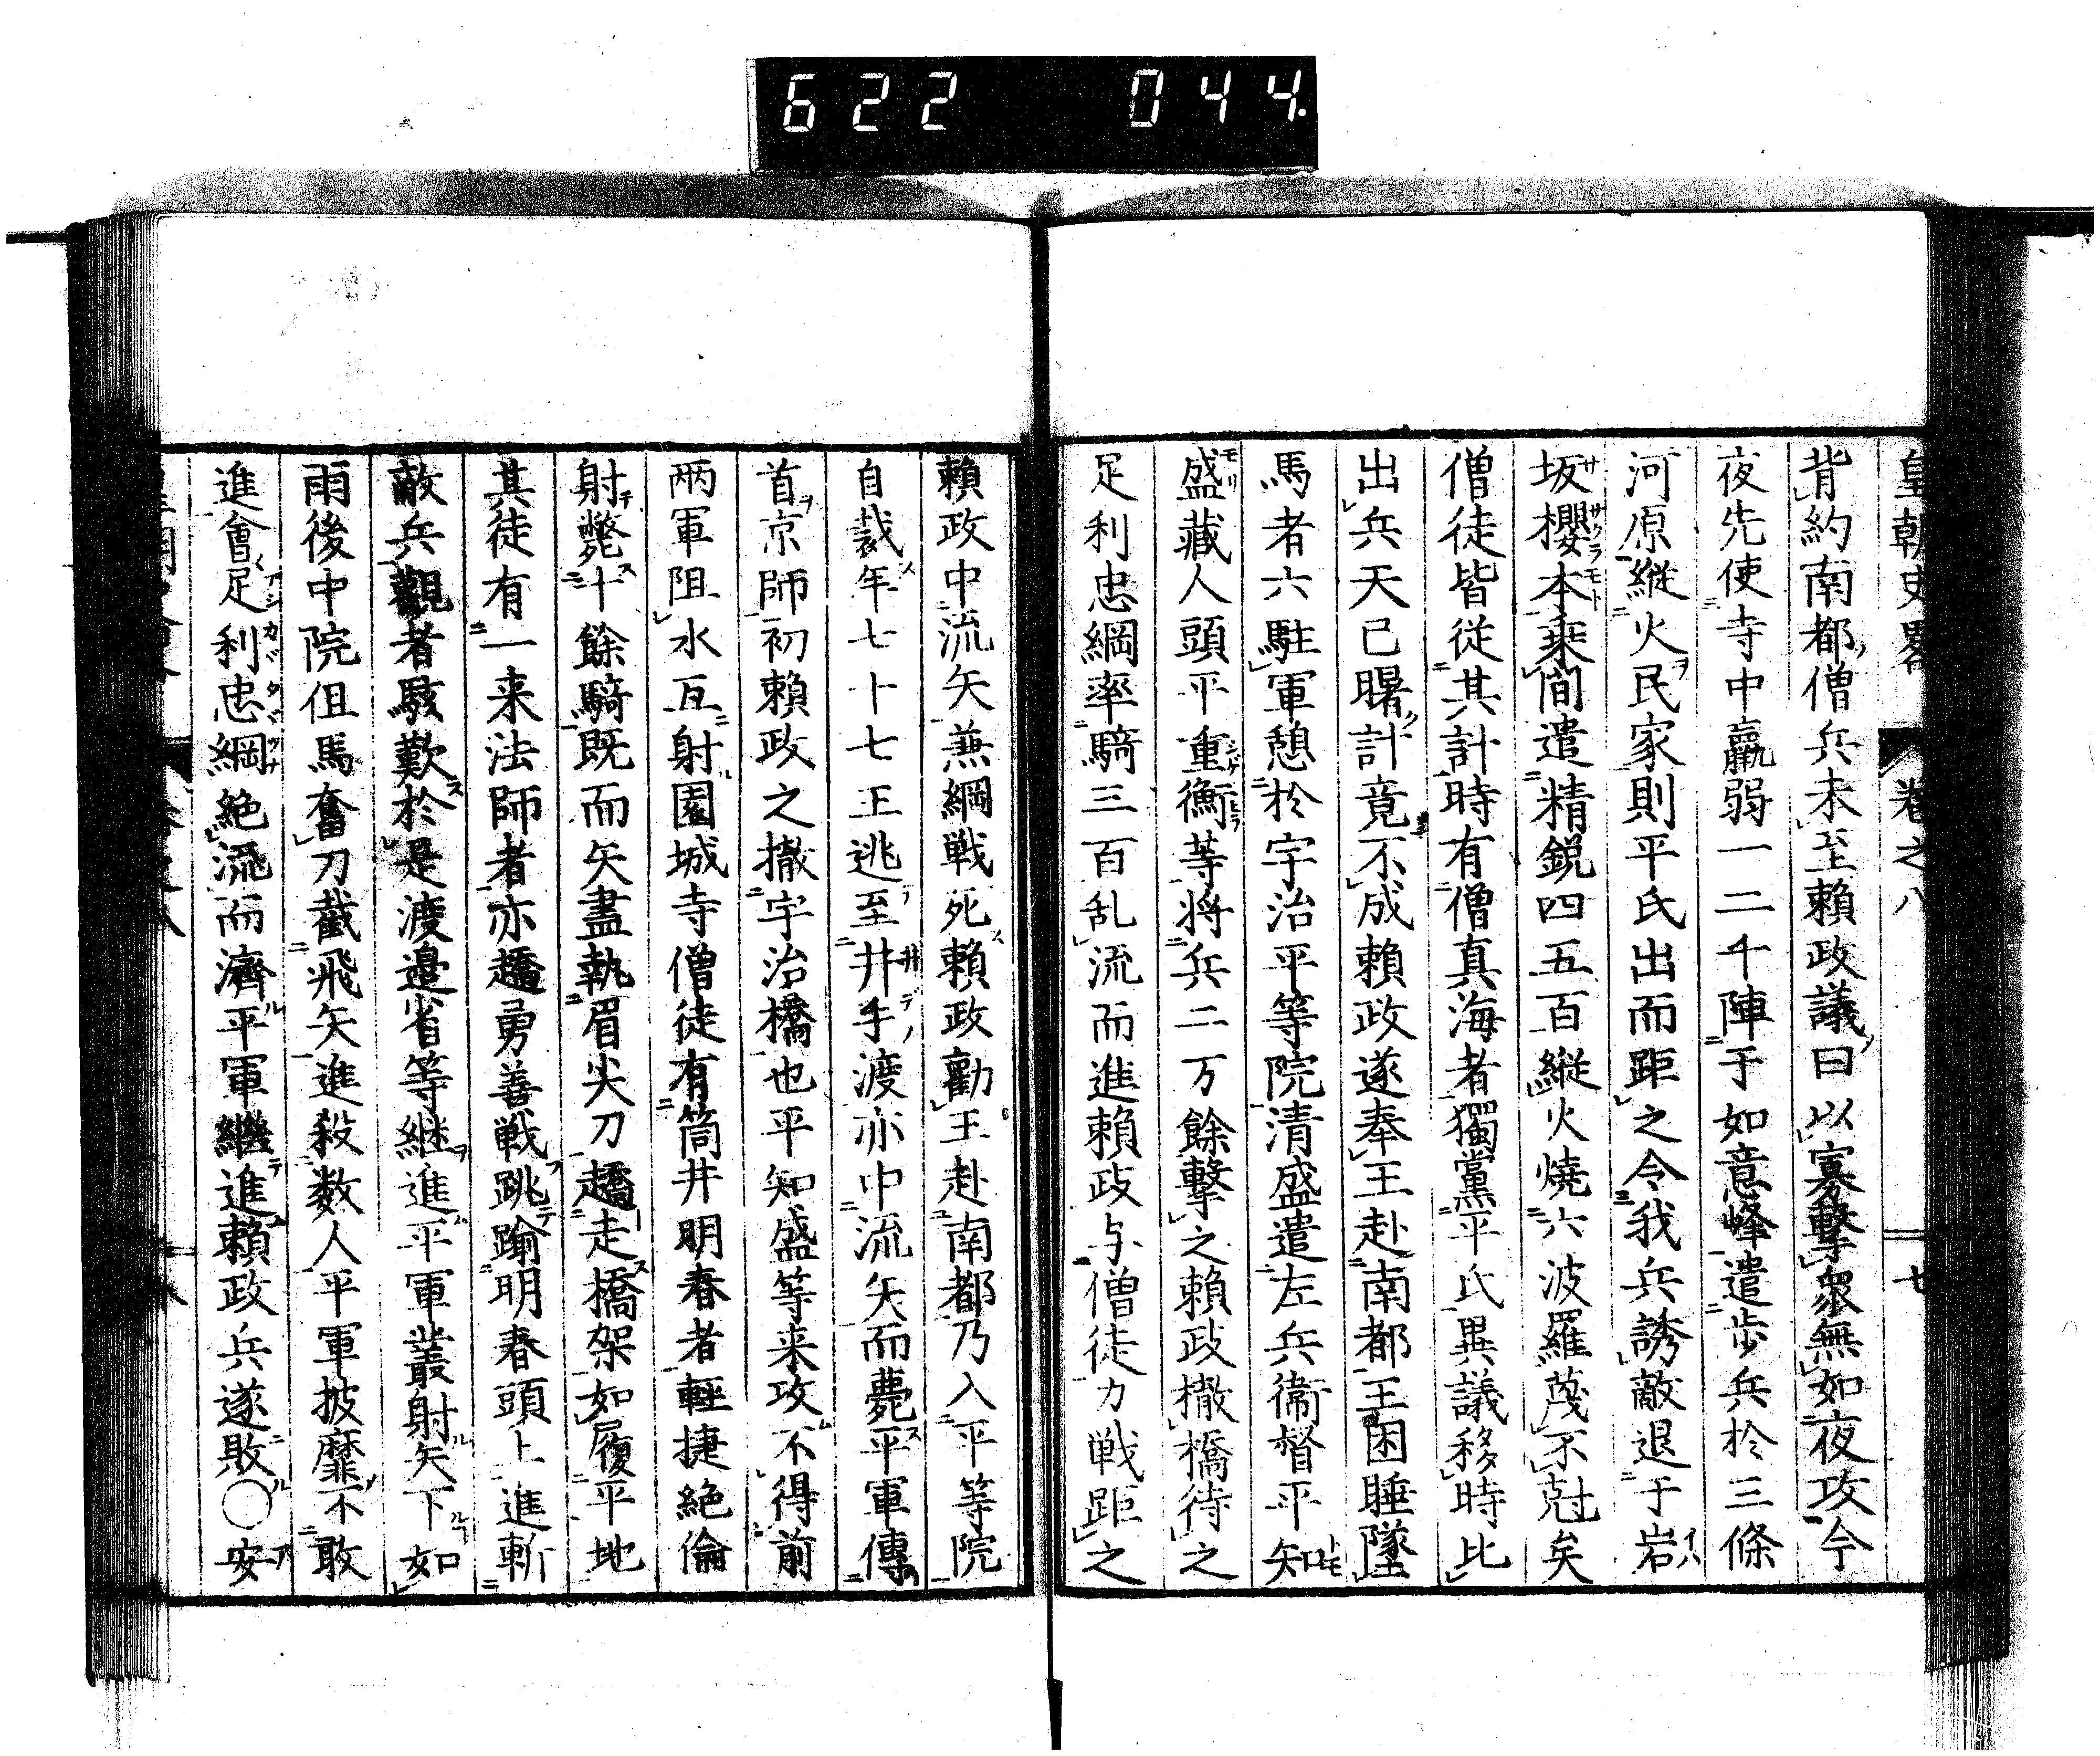 622 044.
皇朝史畧 卷之八 七
背約南都僧兵未至賴政議曰以寡擊衆無如夜攻今
夜先使寺中羸弱一二千陣于如意峰遣步兵於三條
河原縱火民家則平氏出而距之令我兵誘敵退于岩
坂櫻本乘間遣精銳四五百縱火燒六波羅蔑不克矣
僧徒皆從其計時有僧真海者獨黨平氏異議移時比
出兵天已曙計竟不成賴政遂奉王赴南都王困睡墜
馬者六駐軍憩於宇治平等院清盛遣左兵衞督平知
盛藏人頭平重衡等將兵二万餘擊之賴政撤橋待之
足利忠綱率騎三百乱流而進賴政与僧徒力戦距之
賴政中流矢兼綱戦死賴政勸王赴南都乃入平等院
自裁年七十七王逃至井手渡亦中流矢而薨平軍傳
首京師初賴政之撤宇治橋也平知盛等来攻不得前
两軍阻水互射園城寺僧徒有筒井明春者輕捷絶倫
射斃十餘騎既而矢盡執眉尖刀趫走橋架如履平地
其徒有一来法師者亦趫勇善戦跳踰明春頭上進斬
敵兵觀者駭歎於是渡邉省等継進平軍叢射矢下如
雨後中院但馬奮刀截飛矢進殺数人平軍披靡不敢
進會足利忠綱絶流而濟平軍繼進賴政兵遂敗○安